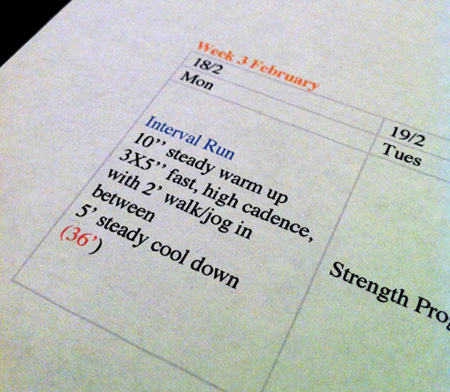 Week 3 February
18/2
Mon
Interval Run
10'' steady warm up
3X5'' fast, high cadence,
with 2' walk/jog in
between
5' steady cool down
(36')
19/2
Tues
Strength